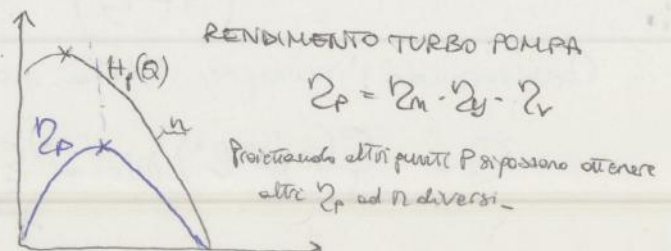 RENDIMENTO TURBO POMPA
Hp(Q)
ηp = ηm · ηy · ηv
ηp
n
Proiettando altri punti P si possono ottenere
altri ηp ad n diversi_